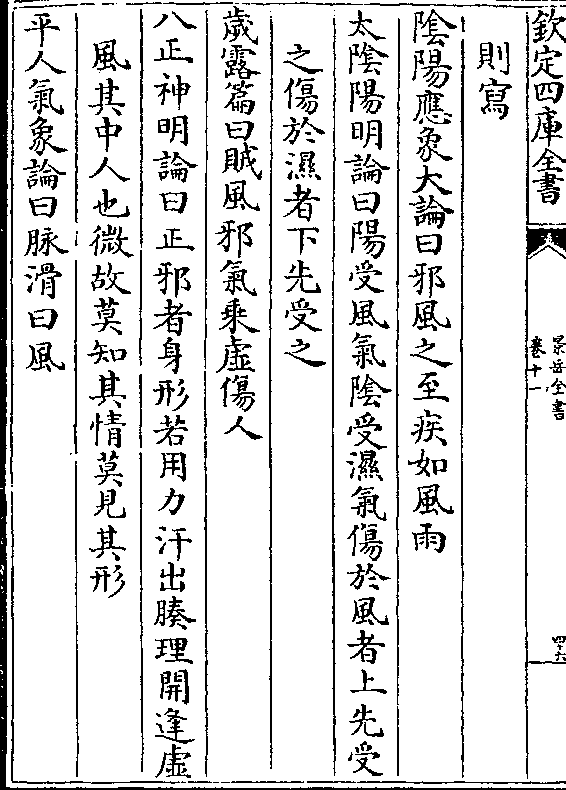 欽定四庫全書
景岳全書
卷十一
四十六
則寫
陰陽應象大論曰邪風之至疾如風雨
太陰陽明論曰陽受風氣陰受濕氣傷於風者上先受
之傷於濕者下先受之
歲露篇曰賊風邪氣乘虛傷人
八正神明論曰正邪者身形若用力汗出腠理開逢虛
風其中人也微故莫知其情莫見其形
平人氣象論曰脉滑曰風